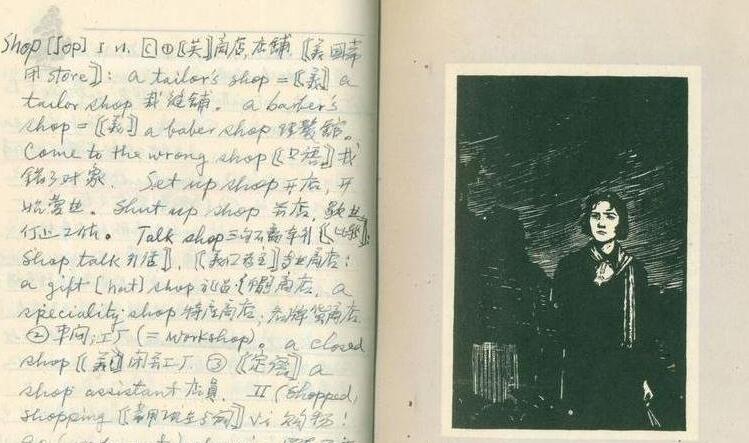 shop [ʃop] I n. [C] ①〖英〗商店,店铺〖美国常
用 store〗: a tailor's shop =〖美〗a
tailor shop 裁缝铺。 a barber's
shop =〖美〗a baber shop 理髮館。
Come to the wrong shop〖口语〗找
错了对家. Set up shop 开店,开
始营业。 Shut up shop 关店,歇业
停止工作。 Talk shop 三句不离本行
shop talk
a gift [hat] shop 礼品[帽]商店, a
speciality shop 特产商店;名牌货商店.
② 车间;工厂 (= workshop)。 a closed
shop〖美〗闭关工厂. ③〖定语〗a
shop assistant 店員. II (shopped,
shopping) vi 购物: